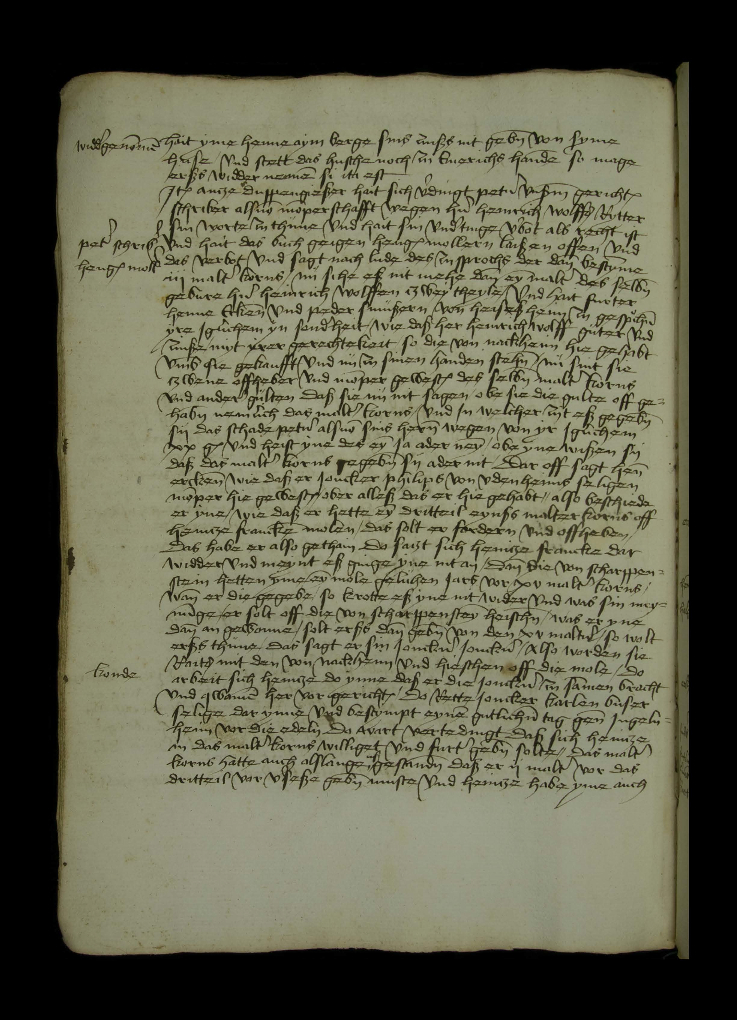 widdergenomē
hait yme henne aym berge sins zinßs nit gebē von syme
huse / Und stett das husche noch in Emerichs hande so mage
erßs widder nemen si ita est
Itē antze duppengießer hait sich v'dingt pet' unserm gerichtß
schriber alsuo moperschafft wegen hn̄ heinrich wolffß Ritter
petr' schrib'
sin worte zu thune Und hait sin und'tinge v'bot als recht ist
Und hait das buch geigen hengn̄ mollern laißen offen und
hengn̄ moll'
das verbot / Und sagt nach lude des zusprochs der dan bestymē
iiij malt' korns / nu sihe eß nit mehe dan ey malt' des selbn̄
gebure hn̄ heinrich wolffen zwey theyle / Und hait furter
henne Ercken und peder smußern von heisesheim zu gesprochn̄
yre iglichem yn sond'heit / wie daß her heinrich wolff guter und
zinße mit yrer gerechtekeit so die von nackheim hie gehabt
umb sie gekaufft / und nu in sinen handen stehn / nu sint sie
zwene offheber und moper gewest des selbn̄ malt' korns
und ander gulten Daß sie nu nit sagen obe sie die gulte off ge-
habn̄ nemlich das malt' korns / und in welcher zyt eß gegebn̄
sij das schade petr' alsuo sins hern wegen von yr iglichem
xx gß und heist yne des ey ja ader ney / obe yne wißen sij
daß das malt' korns gegebn̄ sij ader nit / Dar off sagt hen
ercken / wie daß er joncker philips von udenheims seligen
moper hie gewest / ober alleß das er hie gehabt / also beschiede
er yne / wie daß er hette ey dritteil eynßs malter korns off
heintze francke molen / das solt er fordern und offheben /
Das habe er also gethan. Do saczt sich heintze francke dar
widder und meynt eß ginge yne nit an / Dan die von scharppen-
stein hetten yme ey mole geluhen jars vor xv malt' korns /
Wan er die gegebe / so krotte eß yne nit wider und was sin mey-
nunge / er solt off die von scharppensteyn heischn̄ / was er yne
dan an gewonne / solt erßs dan gebn̄ von den xv maltn̄ / so wolt
erßs thune. Das sagt er sin jonckn̄ jonckn̄ / Also worden sie
Raits mit den von nackheim und hieschen off die mole / Do
konde
arbeit sich heintze do ynne daß er die jonckn̄ zu samen bracht
und qwamen her vor gericht / Do Rette joncker karlen buser
selige dar ynne und bestympt eynē gutlichn̄ tag gen Ingeln-
heim vor die edeln. Da wart verteidingt daß sich heintze
in das malt' korns williget / und furt' gebn̄ solte. Das malt'
korns hatte auch alslange gestandn̄ daß er ij malt' vor das
dritteil vor v'seße gebn̄ muste / und heintze habe yme auch